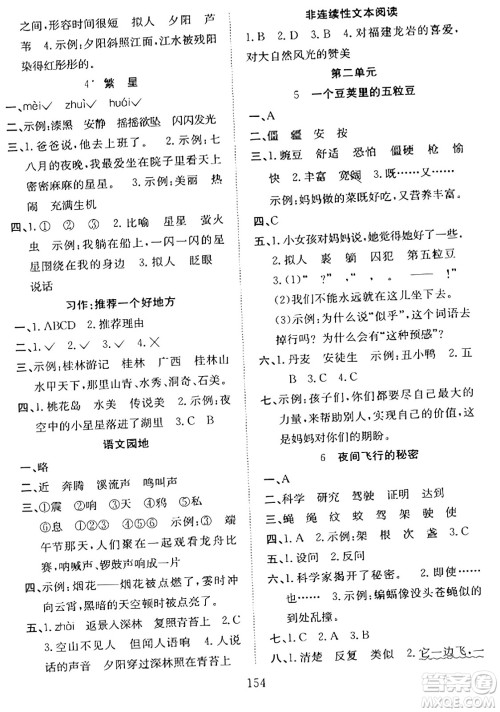 之间，形容时间很短 拟人 夕阳 芦
苇 4.示例：夕阳照射下，江水被残阳
染得红彤彤的。
4* 繁星
一、mèi✓ zhuì✓ huái✓
二、示例：漆黑 安静 摇摇欲坠 模糊
三、1.爸爸说，他去上班了。 2.示例：七
八月的夜晚，我常坐在院子里看天上密
密麻麻的星星。 3.示例：美丽 热
闹 充满生机
四、1.①②③ 2.比喻 星星 萤火
虫 示例：我躺在船上，那一闪一闪的
星星围绕在我的身边 3.拟人 眨眼
说话
习作：推荐一个好地方
一、1.ABCD 2.推荐理由
二、1.✓ 2.✓ 3.✓
三、示例：桂林游记 桂林 广西 桂林山
水甲天下 有青山、秀水、洞奇、石美。
四、1.桃花岛 水美 传说美 2.示例：夜
空中的小星星落在了湖里 3.C B A
语文园地
一、略
二、近 奔腾 溪流声 鸣叫声
三、1.①震 ②响 ③鸣 ④吼
2.⑤ ⑥ ④ ② ③ ① 3.示例：端
午节那天，人们聚在一起观看龙舟比
赛，呐喊声、锣鼓声响成一片。
四、示例：烟花——烟花被点燃了，“轰”的一声
冲向云霄，黑暗的天空顿时被点亮了。
五、1.zhài 2.返景入深林 复照青苔上
3.空山不见人 但闻人语响 有人
说话的声音 夕阳穿过深林照在青苔上
非连续性文本阅读
1.B 2.D 3.A 4.对福建龙岩的喜爱，
对大自然风光的赞美
第二单元
5 一个豆荚里的五粒豆
一、A
二、僵 疆 安 按
三、1.豌豆 舒适 恐怕 僵硬 枪
快 2.示例：既……又……
妈妈做的菜既好吃，又营养丰富。
四、C
五、1.小女孩对妈妈说，她觉得她好了
2.拟人 裹 躺 囚犯 第五粒豆
3.(1)“？”“！”
(2)示例：为什么说“似乎”，这个词语去
掉行吗？(3)示例：为什么把一粒小
豌豆说成“一个小花园”？
六、1.丹麦 安徒生 示例：丑小鸭
2.示例：孩子们，你们要好好积蓄自己的
力量，将来帮助别人，努力成为一个对
别人、对社会有贡献的人，实现自己的价值，这
是妈妈对你们的期盼。
6 夜间飞行的秘密
一、A
二、科学 研究 驾驶 证明 达到
三、蝇 绳 蚊 蛟 驾 架 驶 使
四、示例：架 根 次 盏
五、1.设问 2.反复
六、1.科学家揭开了秘密。
2.示例：蝙蝠像没头苍蝇似
的到处乱撞。
七、1.清楚 反复 类似 2.它一边飞，一
154